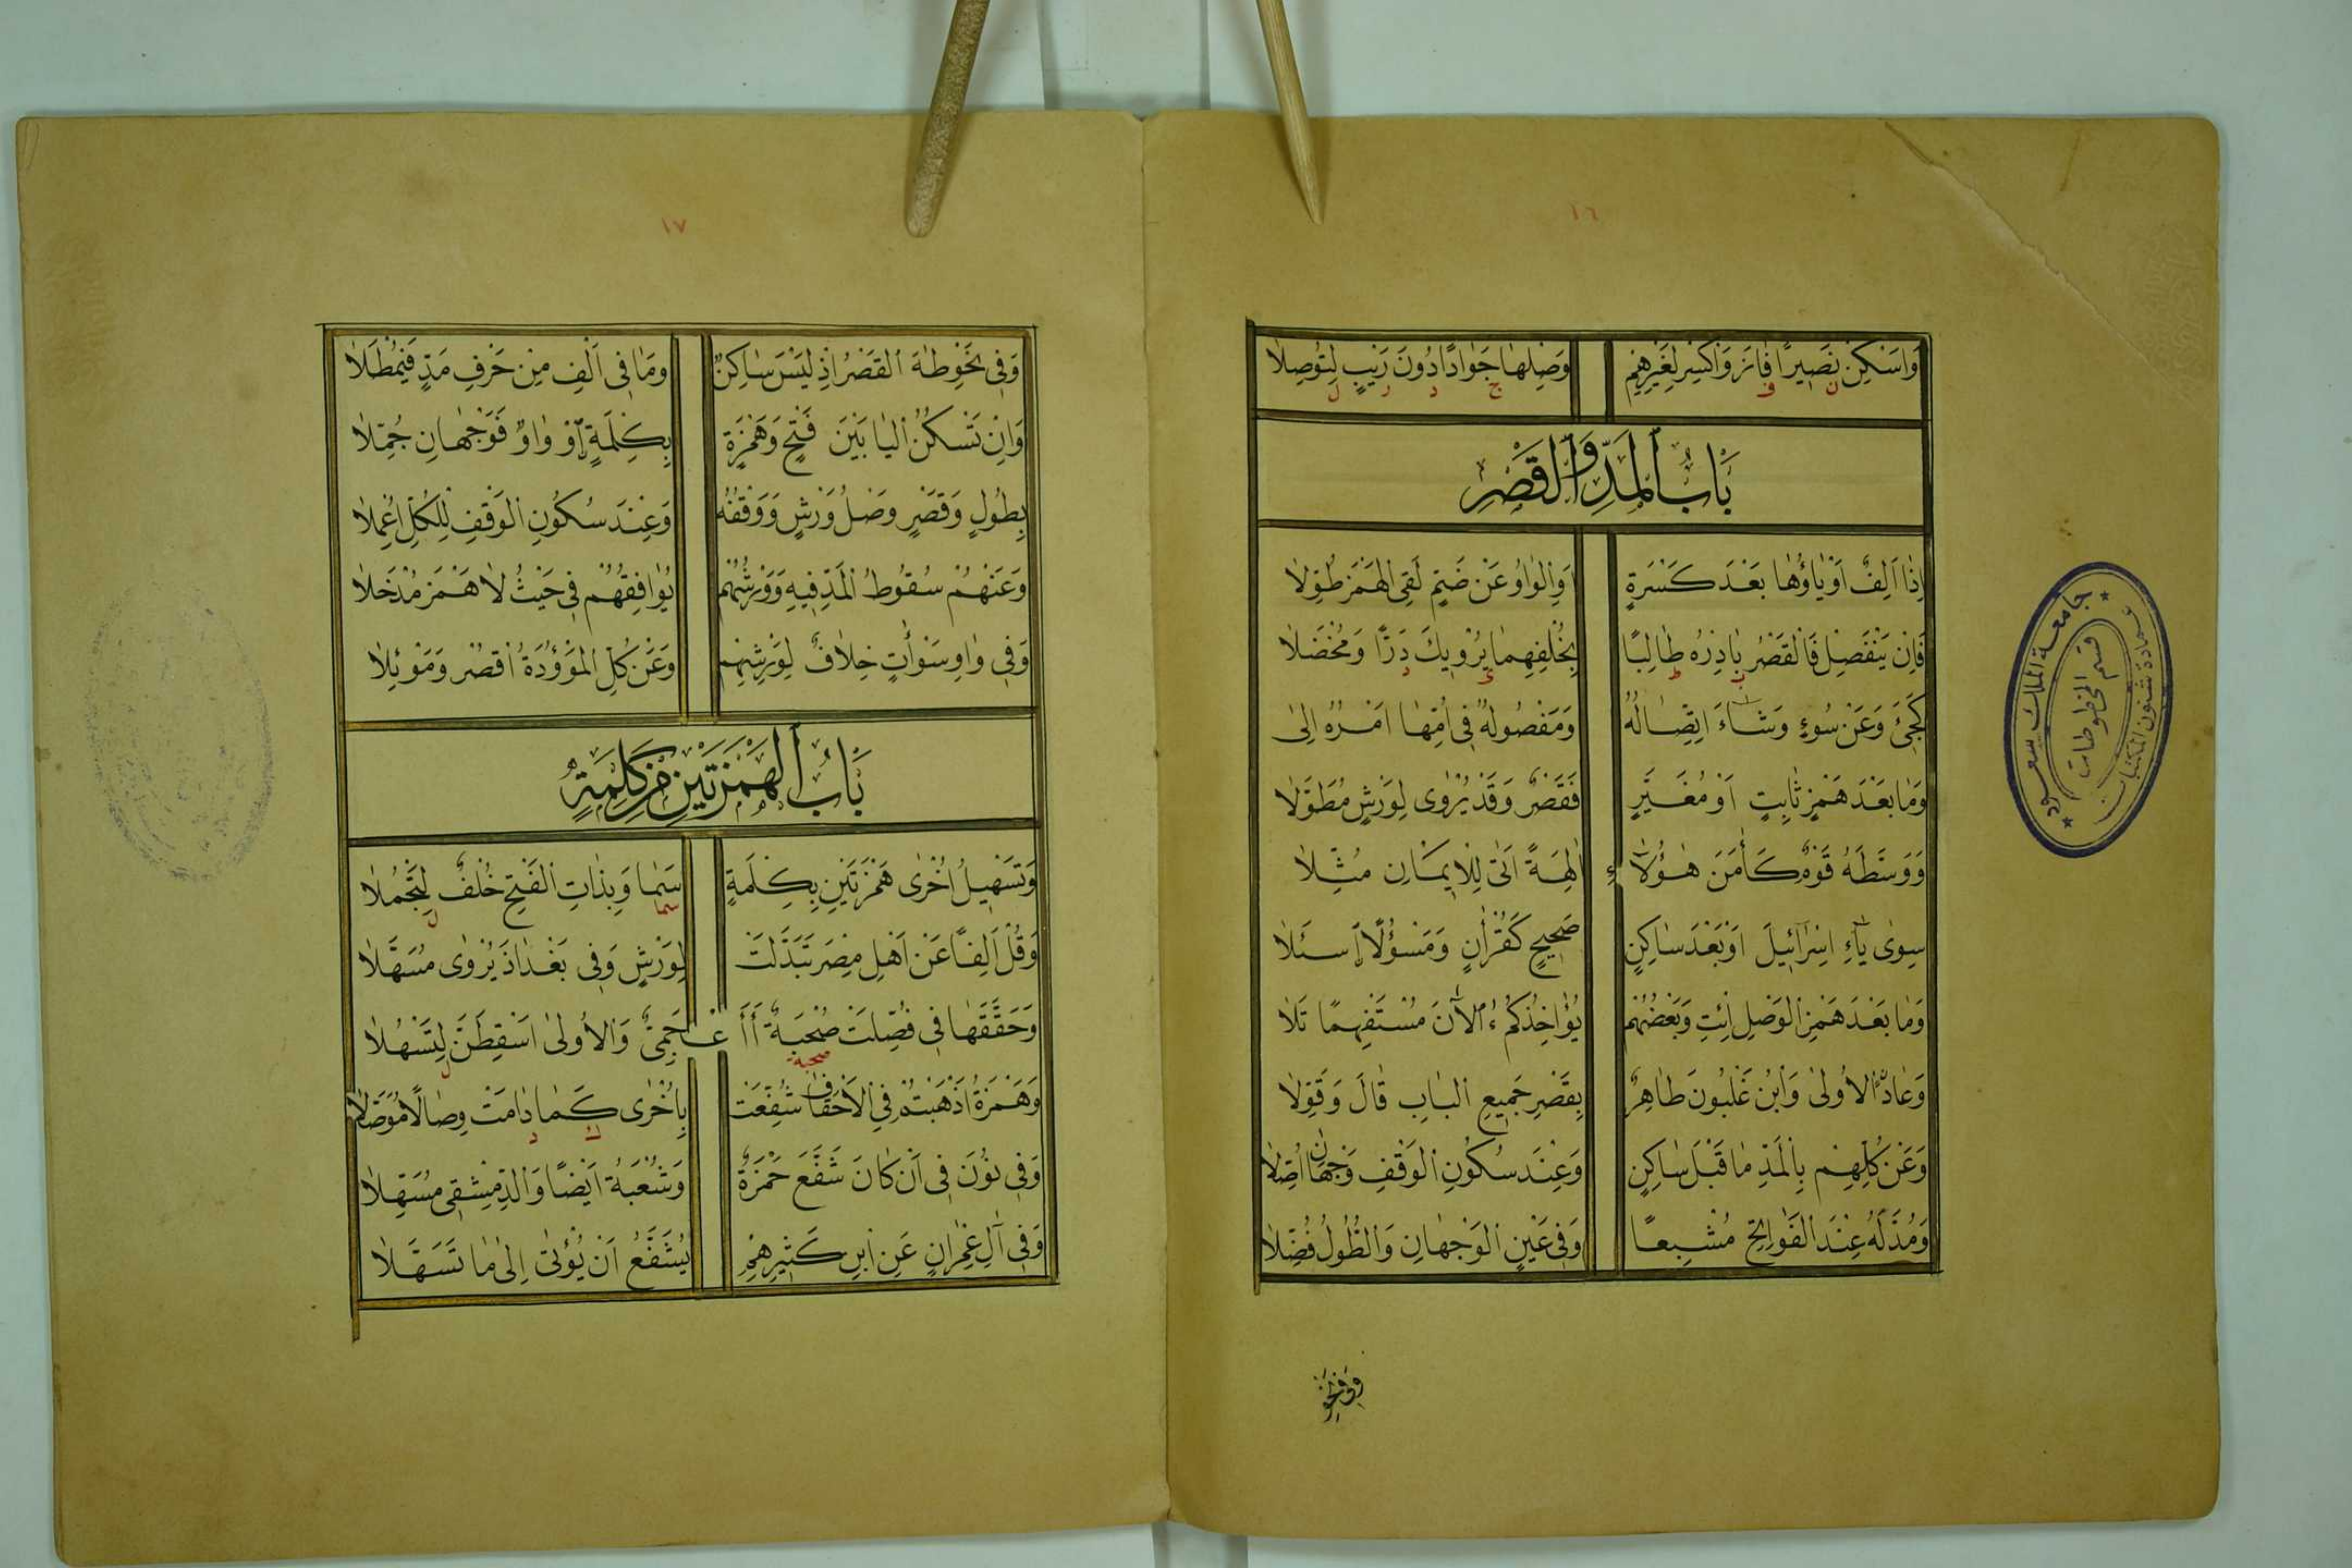 ١٦
وَاَسْكِنْ نَصِيرًا فَازَ وَاكْسِرْ لِغَيْرِهِمْ وَصِلْهَا جَوَادًا دُونَ رَيْبٍ لِتُوصَلَا
ن ف ج د ر ل
بَابُ الْمَدِّ وَالْقَصْرِ
اِذَا اَلِفٌ اَوْ يَاؤُهَا بَعْدَ كَسْرَةٍ اَوِ الْوَاوُ عَنْ ضَمٍّ لَقِى الْهَمْزَ طُوِّلَا
فَاِنْ يَنْفَصِلْ فَالْقَصْرُ بَادِرْهُ طَالِبًا بِخُلْفِهِمَا يُرْوِيكَ دَرًّا وَمُخْضَلَا
ب ط ي د
كَجِئَ وَعَنْ سُوءٍ وَشَاءَ اِتِّصَالُهُ وَمَفْصُولُهُ فِى اُمِّهَا اَمْرُهُ اِلَى
وَمَا بَعْدَ هَمْزٍ ثَابِتٍ اَوْ مُغَيَّرٍ فَقَصْرٌ وَقَدْ يُرْوَى لِوَرْشٍ مُطَوَّلَا
وَوَسَّطَهُ قَوْمٌ كَأٰمَنَ هٰؤُلَاءِ اٰلِهَةً اَتَى لِلْاِيمَانِ مُثِّلَا
سِوَى يَاءِ اِسْرَائِيلَ اَوْ بَعْدَ سَاكِنٍ صَحِيحٍ كَقُرْاٰنٍ وَمَسْؤُلًا اِسْئَلَا
وَمَا بَعْدَ هَمْزِ الْوَصْلِ اِئْتِ وَبَعْضُهُمْ يُؤَاخِذُكُمْ ءُاٰلْاٰنَ مُسْتَفْهِمًا تَلَا
وَعَادًا الْاُولَى وَابْنُ غَلْبُونَ طَاهِرٌ بِقَصْرِ جَمِيعِ الْبَابِ قَالَ وَقَوَّلَا
وَعَنْ كُلِّهِمْ بِالْمَدِّ مَا قَبْلَ سَاكِنٍ وَعِنْدَ سُكُونِ الْوَقْفِ وَجْهَانِ اُصِّلَا
وَمُدَّ لَهُ عِنْدَ الْفَوَاتِحِ مُشْبِعًا وَفِى عَيْنٍ الْوَجْهَانِ وَالطُّولُ فُضِّلَا
وفى نحو
جامعة الملك سعود
قسم المخطوطات
عمادة شئون المكتبات
١٧
وَفِى نَحْوِ طٰهَ الْقَصْرُ اِذْ لَيْسَ سَاكِنٌ وَمَا فِى اَلِفْ مِنْ حَرْفِ مَدٍّ فَيُمْطَلَا
وَاِنْ تَسْكُنِ الْيَا بَيْنَ فَتْحٍ وَهَمْزَةٍ بِكِلْمَةٍ اَوْ وَاوٌ فَوَجْهَانِ جُمِّلَا
بِطُولٍ وَقَصْرٍ وَصْلُ وَرْشٍ وَوَقْفُهُ وَعِنْدَ سُكُونِ الْوَقْفِ لِلْكُلِّ اُعْمِلَا
وَعَنْهُمْ سُقُوطُ الْمَدِّ فِيهِ وَوَرْشُهُمْ يُوَافِقُهُمْ فِى حَيْثُ لَا هَمْزَ مُدْخَلَا
وَفِى وَاوِ سَوْأٰتٍ خِلَافٌ لِوَرْشِهِمْ وَعَنْ كُلٍّ الْمَوْؤُدَةُ اقْصُرْ وَمَوْئِلَا
بَابُ الْهَمْزَتَيْنِ مِنْ كَلِمَةٍ
وَتَسْهِيلُ اُخْرَى هَمْزَتَيْنِ بِكِلْمَةٍ سَمَا وَبِذَاتِ الْفَتْحِ خُلْفٌ لِتَجْمُلَا
سما ل
وَقُلْ اَلِفًا عَنْ اَهْلِ مِصْرَ تَبَدَّلَتْ لِوَرْشٍ وَفِى بَغْدَاذَ يُرْوَى مُسَهَّلَا
وَحَقَّقَهَا فِى فُصِّلَتْ صُحْبَةٌ أَأَعْجَمِىٌّ وَالْاُولَى اَسْقِطَنَّ لِتَسْهُلَا
صحبة ل
وَهَمْزَةُ اَذْهَبْتُمْ فِى الْاَحْقَافِ شُفِّعَتْ بِاُخْرَى كَمَا دَامَتْ وِصَالًا مُوَصَّلَا
ك د
وَفِى نُونَ فِى اَنْ كَانَ شَفَّعَ حَمْزَةٌ وَشُعْبَةُ اَيْضًا وَالدِّمَشْقِى مُسَهِّلَا
وَفِى اٰلِ عِمْرَانٍ عَنِ ابْنِ كَثِيرِهِمْ يُشَفَّعُ اَنْ يُؤْتَى اِلَى مَا تَسَهَّلَا